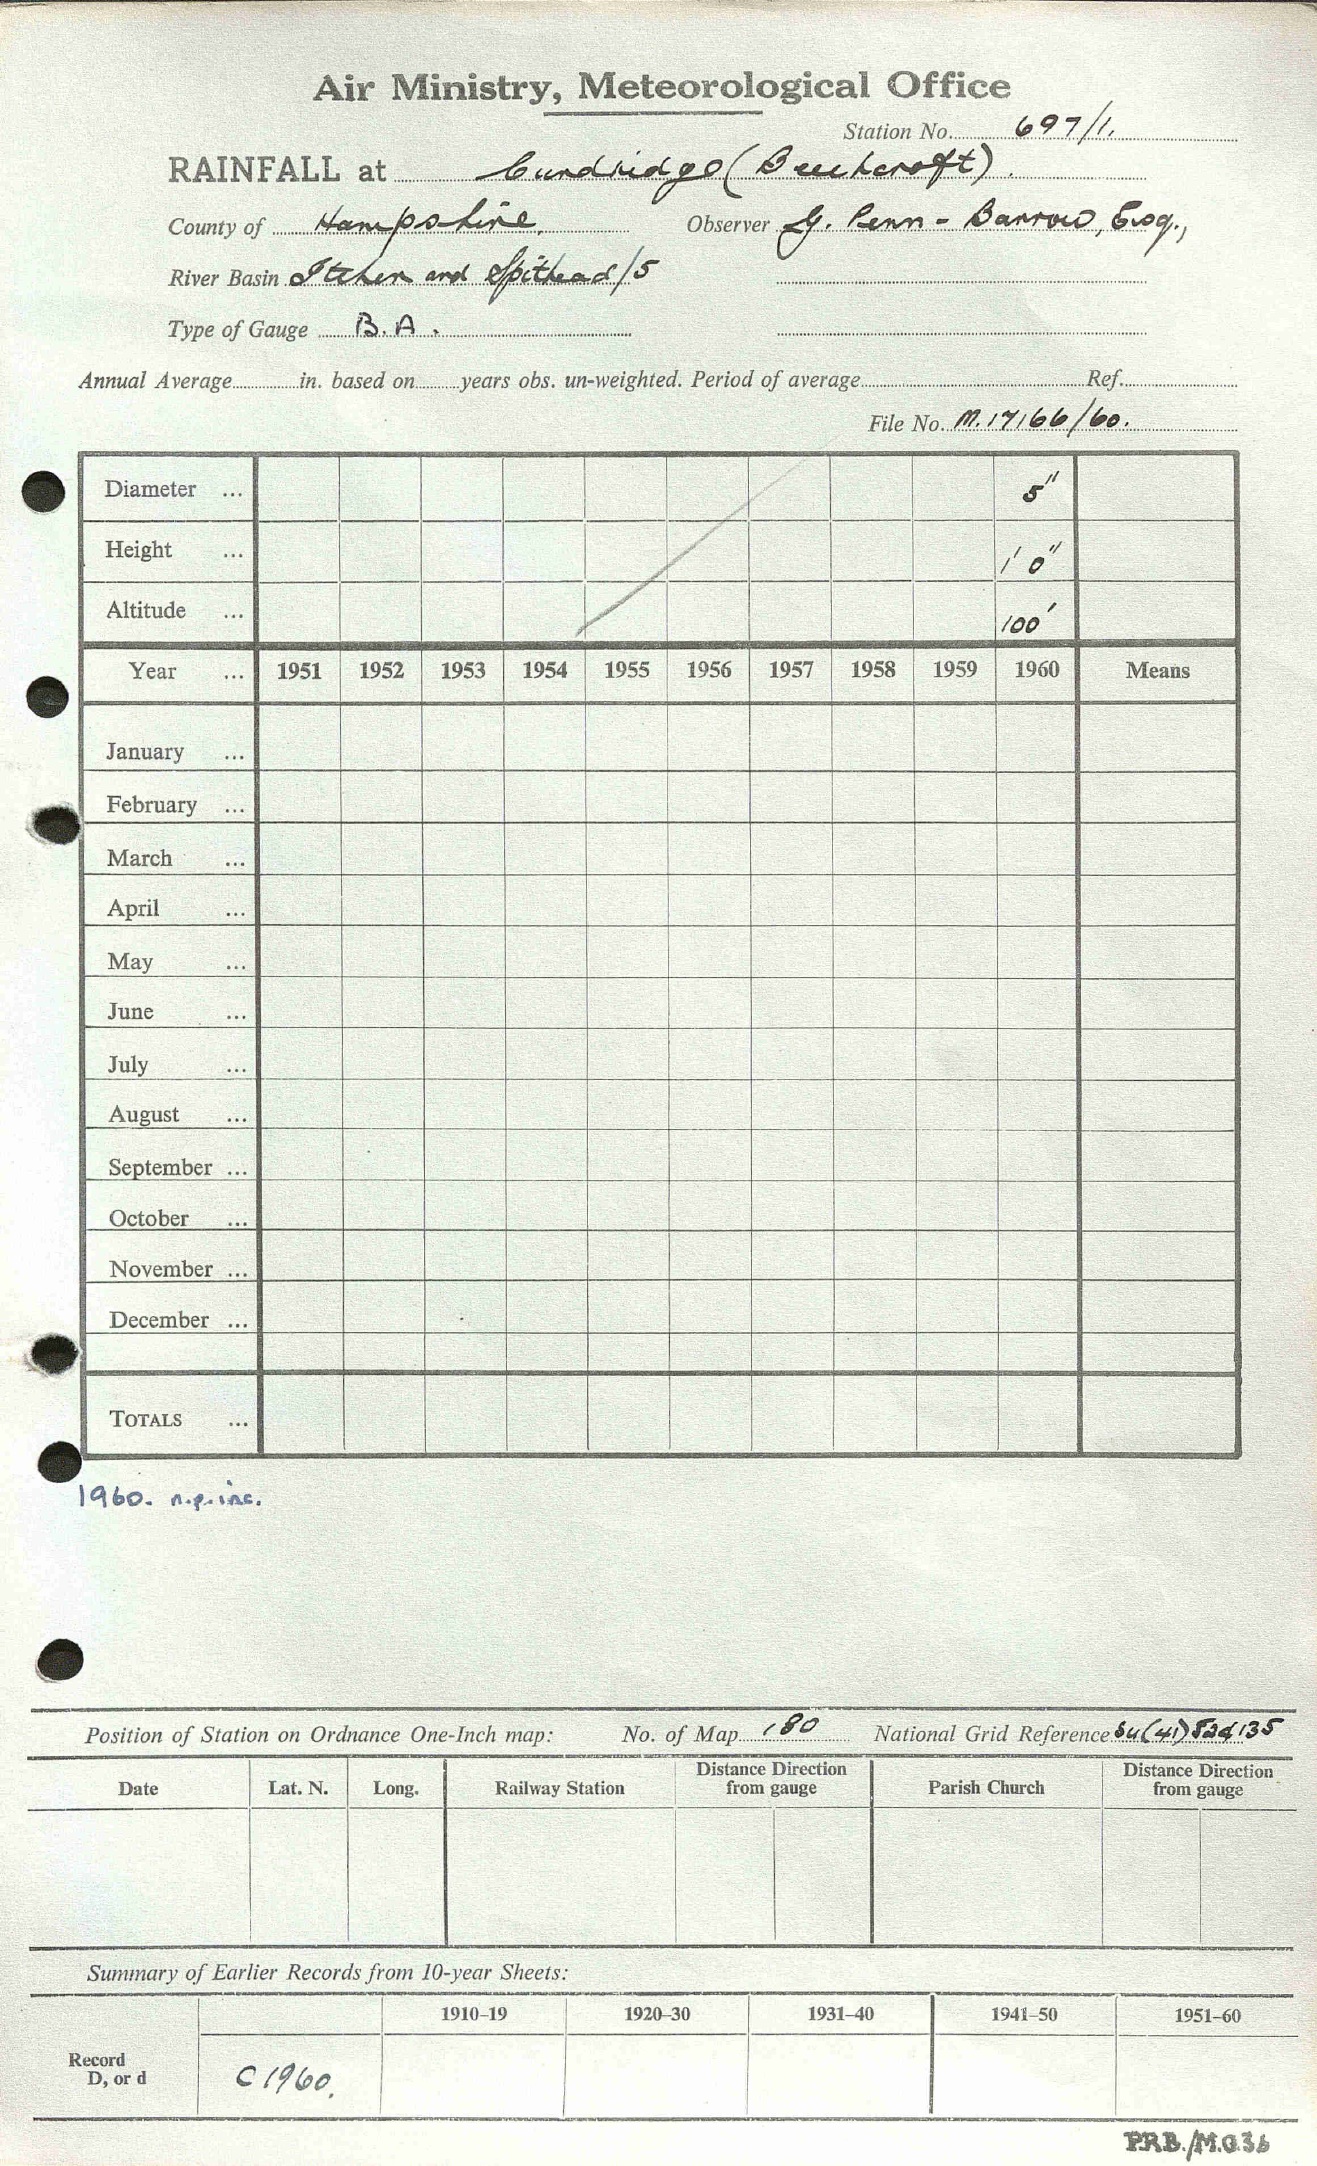 Air Ministry, Meteorological Office
Station No. 697/1.
RAINFALL at Curdridge (Beechcroft).
County of Hampshire. Observer G. Penn-Barrow, Esq.,
River Basin Itchen and Spithead/5
Type of Gauge B.A.
Annual Average in. based on years obs. un-weighted. Period of average Ref.
File No. M.17166/60.
Diameter ... 5"
Height ... 1' 0"
Altitude ... 100'
Year ... 1951 1952 1953 1954 1955 1956 1957 1958 1959 1960 Means
January ...
February ...
March ...
April ...
May ...
June ...
July ...
August ...
September ...
October ...
November ...
December ...
TOTALS ...
1960. n.p. inc.
Position of Station on Ordnance One-Inch map: No. of Map 180 National Grid Reference SU(41)524135
Date Lat. N. Long. Railway Station Distance Direction from gauge Parish Church Distance Direction from gauge
Summary of Earlier Records from 10-year Sheets:
1910-19 1920-30 1931-40 1941-50 1951-60
Record
D, or d C1960.
P.R.B./M.O.36